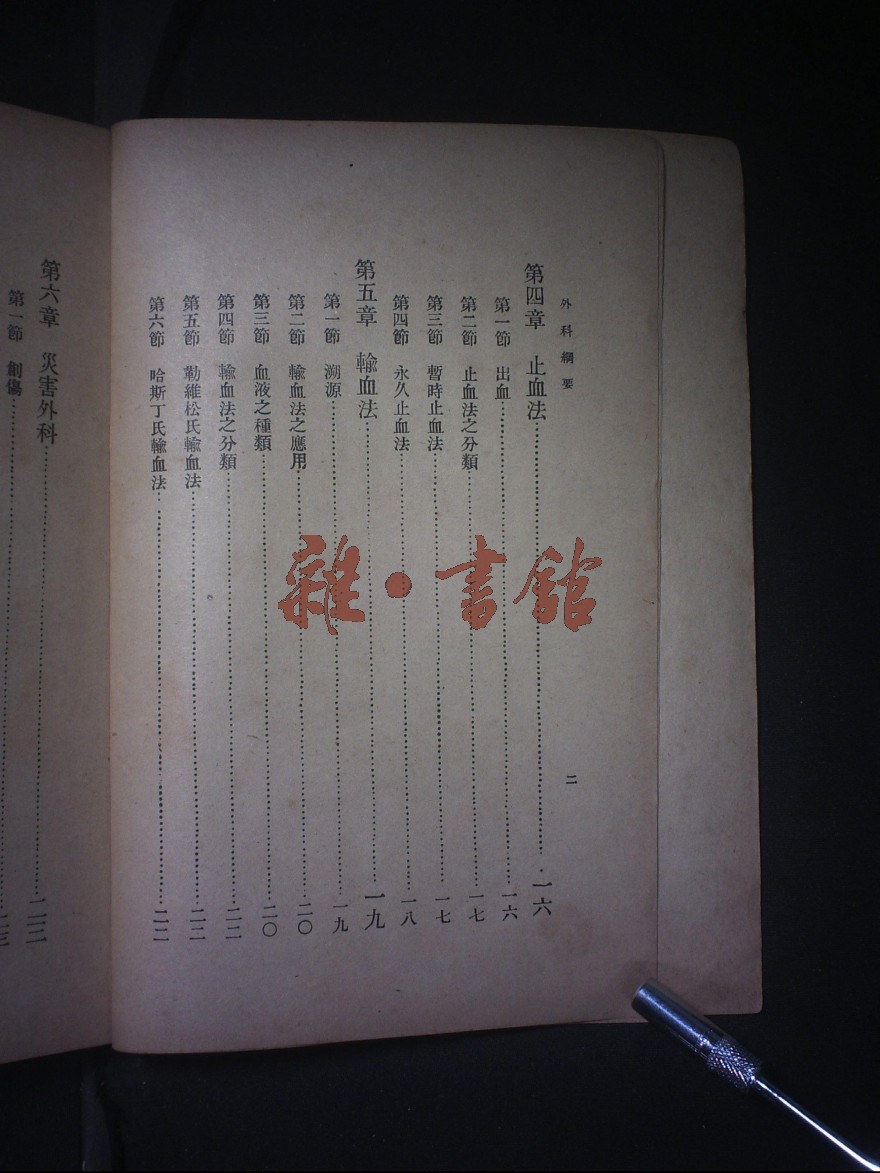 外科綱要
二
第四章　止血法……一六
第一節　出血……一六
第二節　止血法之分類……一七
第三節　暫時止血法……一七
第四節　永久止血法……一八
第五章　輸血法……一九
第一節　溯源……一九
第二節　輸血法之應用……二〇
第三節　血液之種類……二〇
第四節　輸血法之分類……二二
第五節　勒維松氏輸血法……二二
第六節　哈斯丁氏輸血法……二二
第六章　災害外科……二三
第一節　創傷……二三
雜·書館